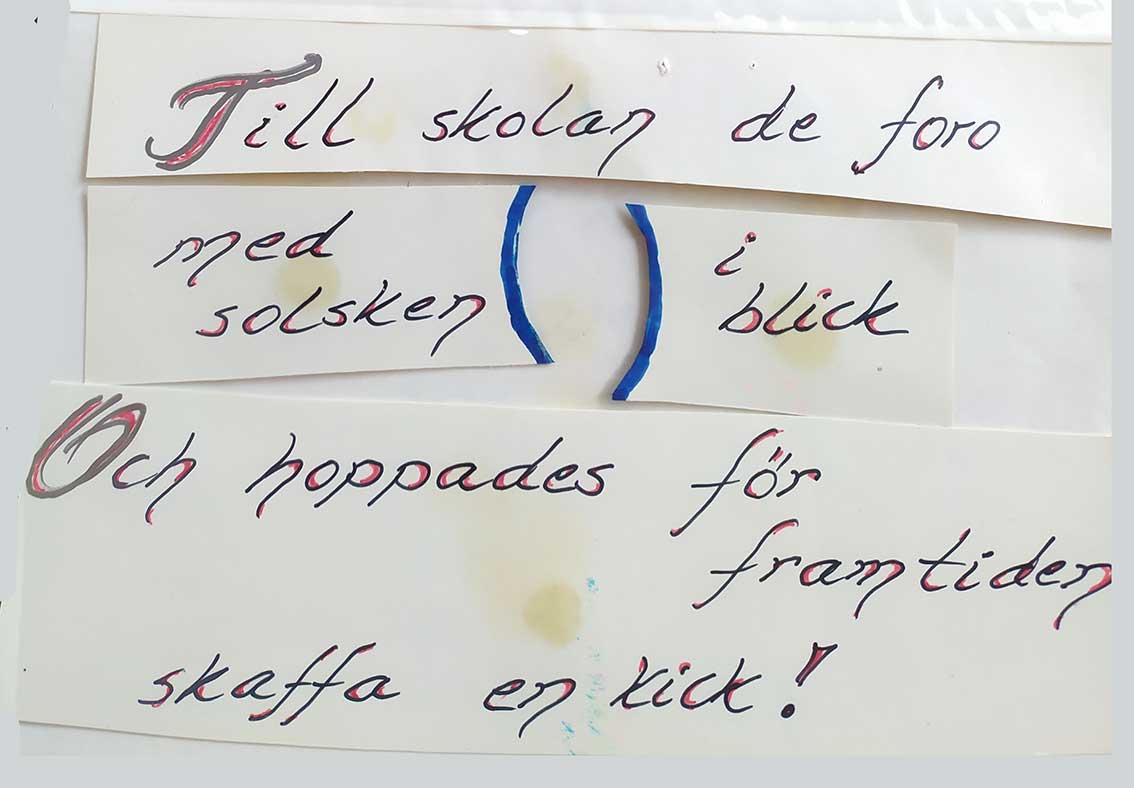 Till skolan de foro
med i
solsken blick
Och hoppades för
framtiden
skaffa en kick!